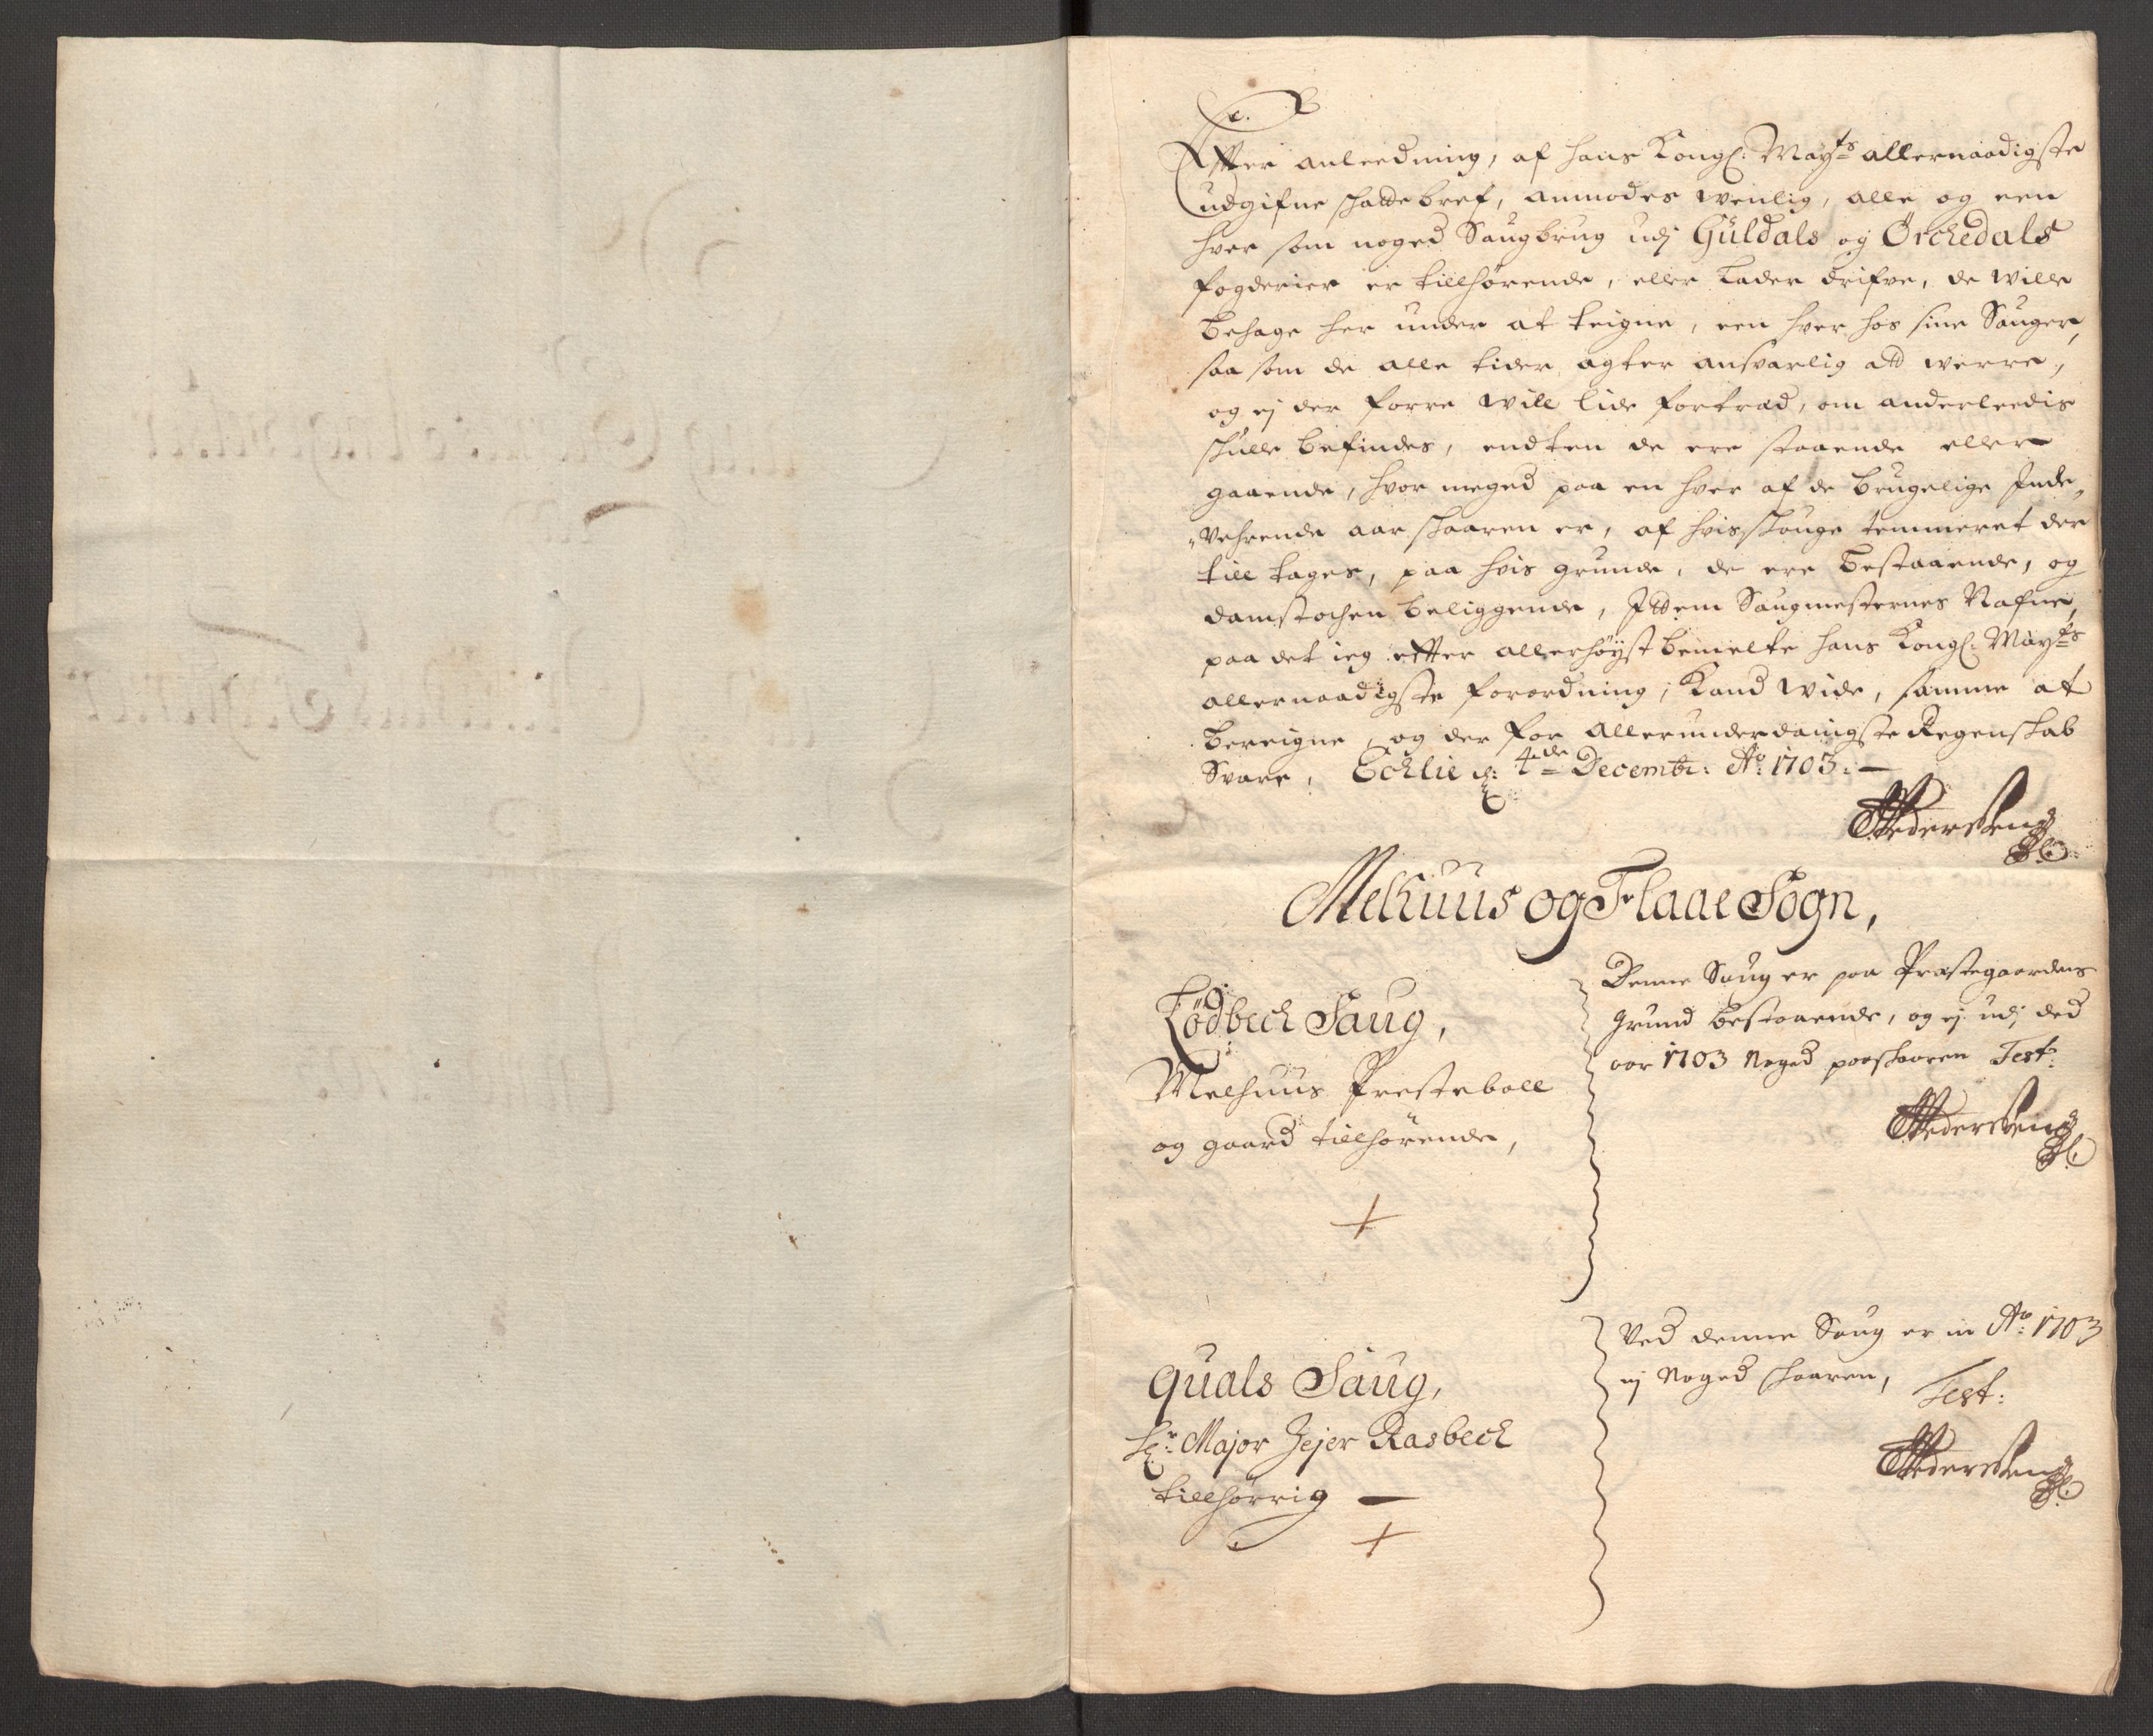 Effter anleedning, af hans Kongl: Maytˢ allernaadigste
udgifne skattebref, anmodes wenlig, alle og een
hver som noged Saugbrug udj Güldals og Örckedals
fogderier er tillhørende, eller lader drifve, de wille
behage her under at teigne, een hver hos sine Sauger,
saa som de alle tider agter ansvarlig att werre,
og ej der forre will lide fortræd, om anderleedis
skulle befindes, endten de ere staaende eller
gaaende, hvor meged paa en hver af de brugelige Inde„
„Vehrende aar skaaren er, af hvis skouge temmeret der
till tages, paa hvis grunde, de ere bestaaende, og
damstochen beliggende, Ittem Saugmesternes Nafne,
paa det ieg effter allerhöyst bemelte hans Kongl: Maytˢ
allernaadigste forordning, kand wide, samme at
bereigne, og der for allerunderdanigste Regenskab
Svare, Ecklie d: 4de Decembr: Ao: 1703: —
Melhuus og Flaae Sogn,
Lödbech Saug,
Melhuus Presteboll
og gaard tillhörende,
Denne Saug er paa Præstegaardens
grund bestaaende, og ej udj ded
aar 1703 Noged paaskaaren Test:
Quals Saug,
Hr: Major Jejer Rasbech
tillhörrig —
Ved denne Saug er in Ao: 1703
ej Noged skaaren,
Test: